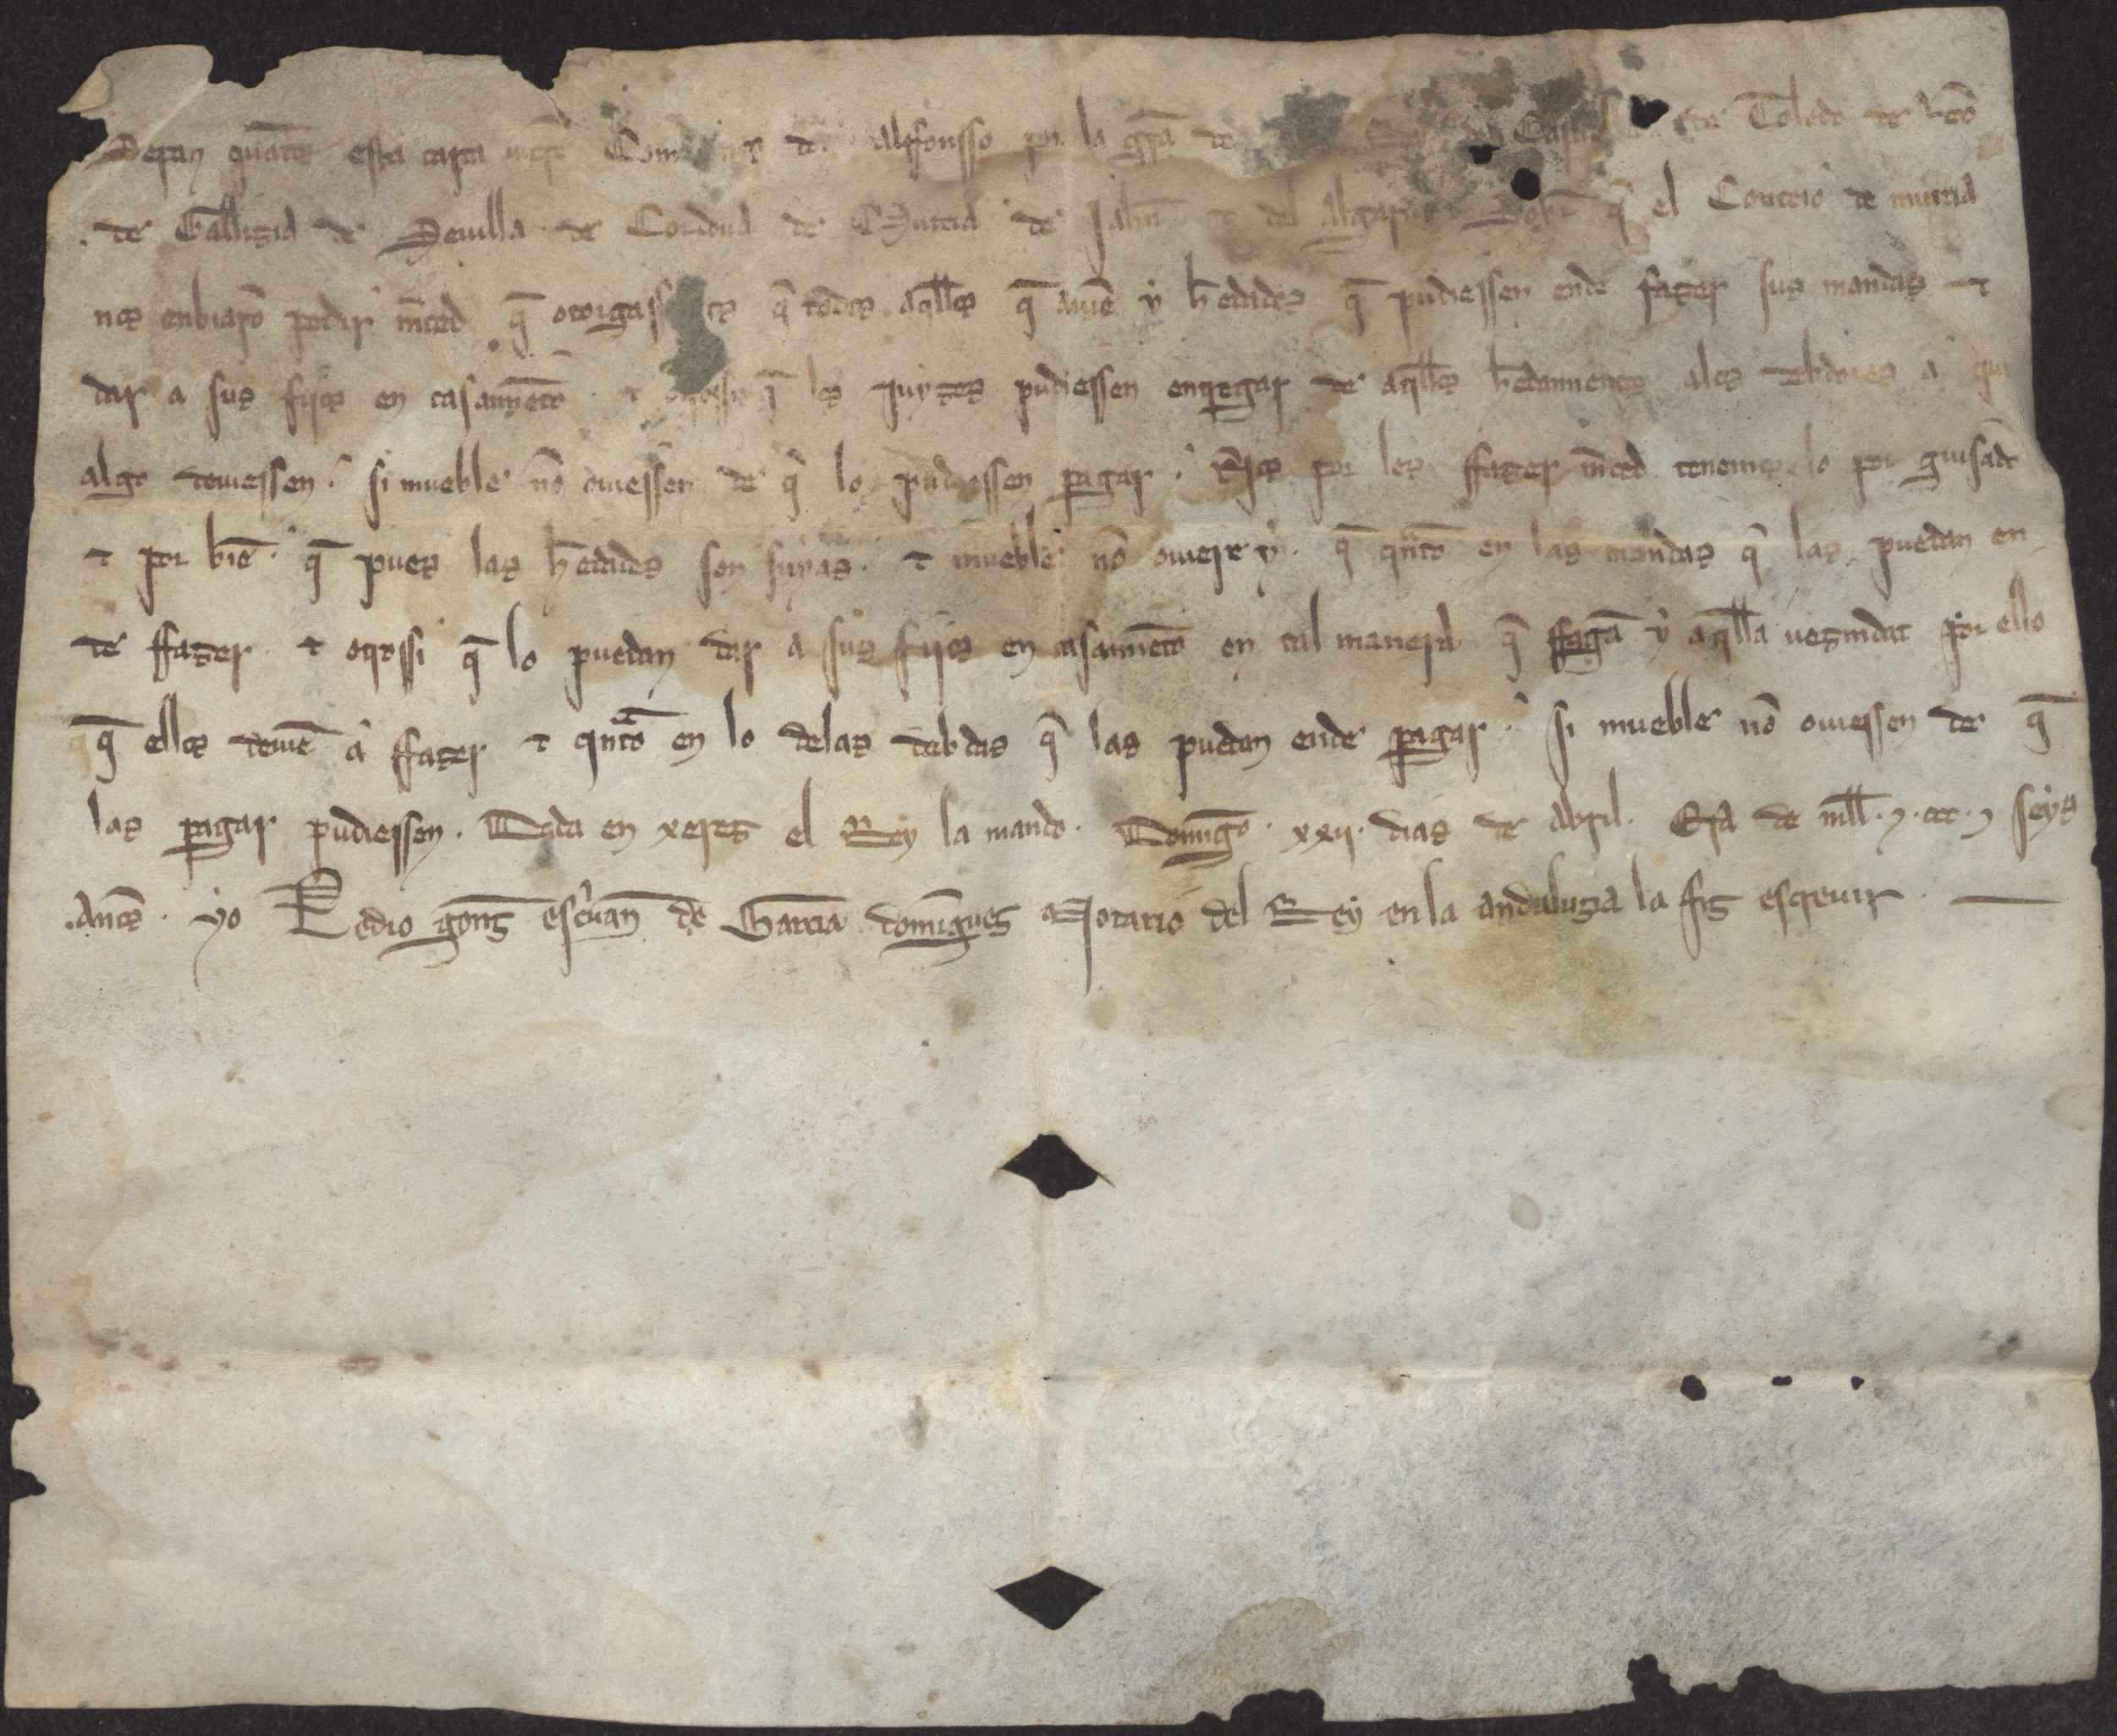 Sepan quātos esta carta uierē Com don Alffonsso por la grā de Rey de Castiella de Toledo de Leō
de Gallizia de Seuilla de Cordoua de Murcia de Jahen τ del Algarue Sobre q̄ el Conceio de murcia
nos enbiarō pedir mẽed q̄ otorgass os q̄ todos aq̄llos q̄ auiē y h̄edades q̄ pudiessen ende fazer sus mandas τ
dar a sus fijos en casamiētō τ otrossi q̄ los Juyzes pudiessen entregar de aq̄llos h̄edamientos alos debdores a qui
algo deuiessen. si mueble nō ouiessen de q̄ lo pudiessen pagar. Nos por les ffazer mẽed tenemos lo por guisado
τ por biē. q̄ pues las h̄edades son suyas. τ mueble nō ouiere y. q̄ qnto en las mandas q̄ las puedan en
de ffazer. τ otrossi q̄ lo puedan dar a sus fijos en casamiētō en tal manera q̄ ffagā y aq̄lla uezindat por ello
q̄ ellos deuiē a ffazer τ qnto en lo delas debdas q̄ las puedan ende pagar. si mueble nō ouiessen de q̄
las pagar pudiessen. Dada en xerez el Rey la mando. Domīgo. xxij. dias de Abril. Era de mill. τ. ccc. τ seys
Anos. yo Pedro gonz̄ escuan de Garcia domīguez Notario del Rey en la andaluzia la fiz escreuir.